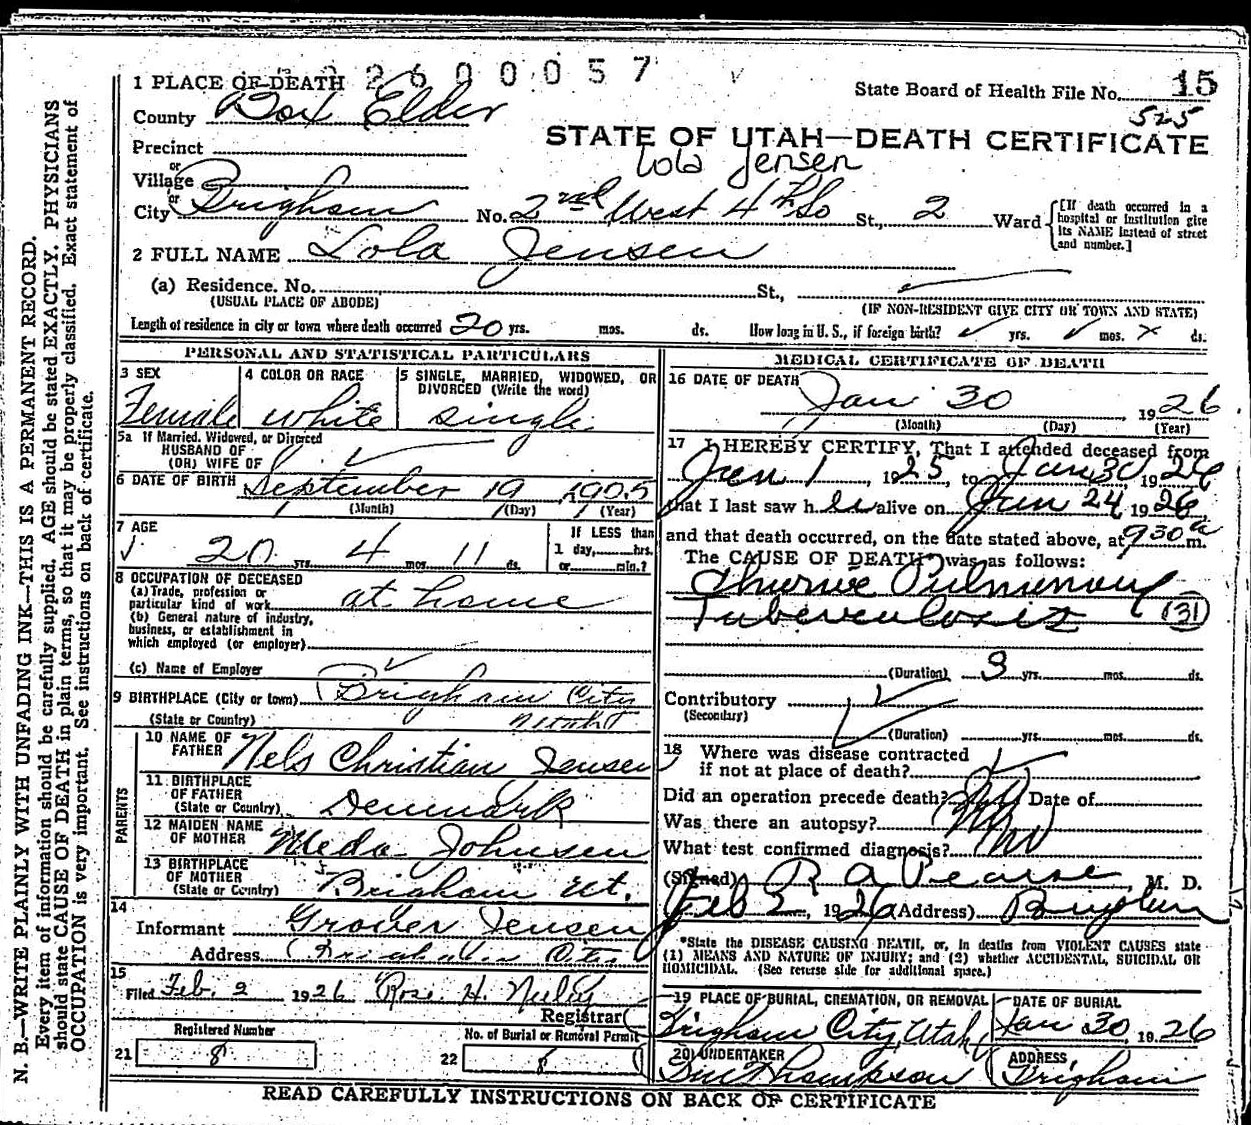 2600057
1 PLACE OF DEATH
State Board of Health File No. 15
525
County Box Elder
STATE OF UTAH—DEATH CERTIFICATE
Lola Jensen
Precinct
or
Village
or
City Brigham No. 2nd West 4th So St., 2 Ward
[If death occurred in a hospital or institution give its NAME instead of street and number.]
2 FULL NAME Lola Jensen
(a) Residence. No. St.,
(USUAL PLACE OF ABODE) (IF NON-RESIDENT GIVE CITY OR TOWN AND STATE)
Length of residence in city or town where death occurred 20 yrs. mos. ds. How long in U. S., if foreign birth? yrs. mos. ds.
PERSONAL AND STATISTICAL PARTICULARS
3 SEX
Female
4 COLOR OR RACE
white
5 SINGLE, MARRIED, WIDOWED, OR
DIVORCED (Write the word)
single
5a If Married, Widowed, or Divorced
HUSBAND OF
(OR) WIFE OF
6 DATE OF BIRTH September 19 1905
(Month) (Day) (Year)
7 AGE
20 yrs. 4 mos. 11 ds.
If LESS than
1 day, hrs.
or min.?
8 OCCUPATION OF DECEASED
(a) Trade, profession or
particular kind of work at home
(b) General nature of industry,
business, or establishment in
which employed (or employer)
(c) Name of Employer
9 BIRTHPLACE (City or town) Brigham City
(State or Country) Utah
PARENTS
10 NAME OF
FATHER Nels Christian Jensen
11 BIRTHPLACE
OF FATHER
(State or Country) Denmark
12 MAIDEN NAME
OF MOTHER Meda Johnsen
13 BIRTHPLACE
OF MOTHER
(State or Country) Brigham Ut.
14
Informant Grover Jensen
Address Brigham City
15
Filed Feb. 2 1926 Rose H. Neeley
Registrar
Registered Number No. of Burial or Removal Permit
21 8 22 8
MEDICAL CERTIFICATE OF DEATH
16 DATE OF DEATH
Jan 30 1926
(Month) (Day) (Year)
17 I HEREBY CERTIFY, That I attended deceased from
Jan 1, 1925, to Jan 30 1926
that I last saw her alive on Jan 24 1926
and that death occurred, on the date stated above, at 930 a m.
The CAUSE OF DEATH* was as follows:
Pulmonary
Tuberculosis (31)
(Duration) 3 yrs. mos. ds.
Contributory
(Secondary)
(Duration) yrs. mos. ds.
18 Where was disease contracted
if not at place of death?
Did an operation precede death? No Date of
Was there an autopsy? No
What test confirmed diagnosis?
(Signed) R A Pearse, M. D.
Feb 2, 1926 (Address) Brigham
*State the DISEASE CAUSING DEATH, or, in deaths from VIOLENT CAUSES state
(1) MEANS AND NATURE OF INJURY; and (2) whether ACCIDENTAL, SUICIDAL OR
HOMICIDAL. (See reverse side for additional space.)
19 PLACE OF BURIAL, CREMATION, OR REMOVAL
Brigham City, Utah
DATE OF BURIAL
Jan 30, 1926
20 UNDERTAKER
Thompson
ADDRESS
Brigham
READ CAREFULLY INSTRUCTIONS ON BACK OF CERTIFICATE
N. B.—WRITE PLAINLY WITH UNFADING INK—THIS IS A PERMANENT RECORD.
Every item of information should be carefully supplied. AGE should be stated EXACTLY. PHYSICIANS
should state CAUSE OF DEATH in plain terms, so that it may be properly classified. Exact statement of
OCCUPATION is very important. See instructions on back of certificate.